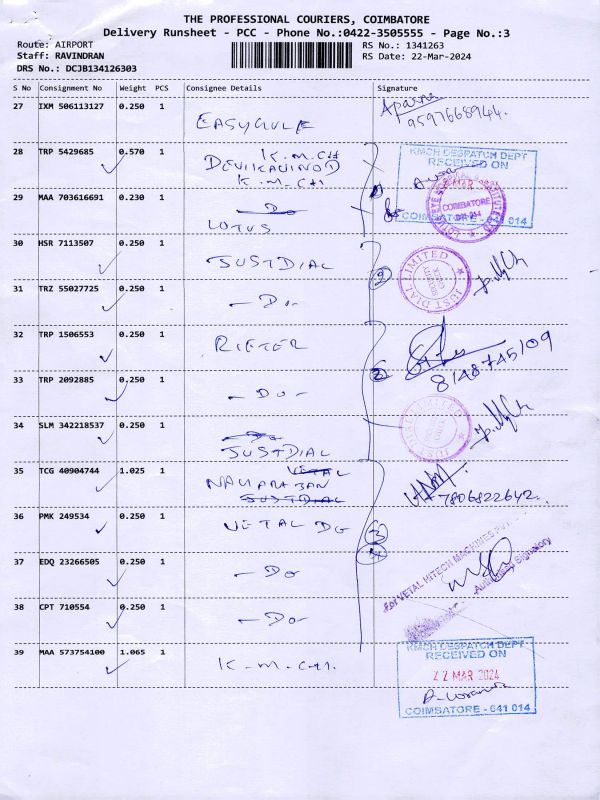 THE PROFESSIONAL COURIERS, COIMBATORE
Delivery Runsheet - PCC - Phone No.:0422-3505555 - Page No.:3
Route: AIRPORT
Staff: RAVINDRAN
DRS No.: DCJB134126303
RS No.: 1341263
RS Date: 22-Mar-2024
S No Consignment No Weight PCS Consignee Details Signature
27 IXM 506113127 0.250 1
Aparna
9597668944.
28 TRP 5429685 0.570 1 K.M.CH
K.M.CH
KMCH DESPATCH DEPT
RECEIVED ON
COIMBATORE - 641 014
29 MAA 703616691 0.230 1
LOTUS
COIMBATORE
30 HSR 7113507 0.250 1
JUSTDIAL
JUST DIAL LIMITED
31 TRZ 55027725 0.250 1
- Do -
32 TRP 1506553 0.250 1
RIETER
8148745109
33 TRP 2092885 0.250 1
- Do -
34 SLM 342218537 0.250 1
JUSTDIAL
JUST DIAL LIMITED
35 TCG 40904744 1.025 1 VETAL
JUSTDIAL
7806822642
36 PMK 249534 0.250 1
VETAL DO
37 EDQ 23266505 0.250 1
- Do
For VETAL HITECH MACHINES
Authorised Signatory
38 CPT 710554 0.250 1
- Do -
39 MAA 573754100 1.065 1
K.M.CH.
KMCH DESPATCH DEPT
RECEIVED ON
22 MAR 2024
COIMBATORE - 641 014